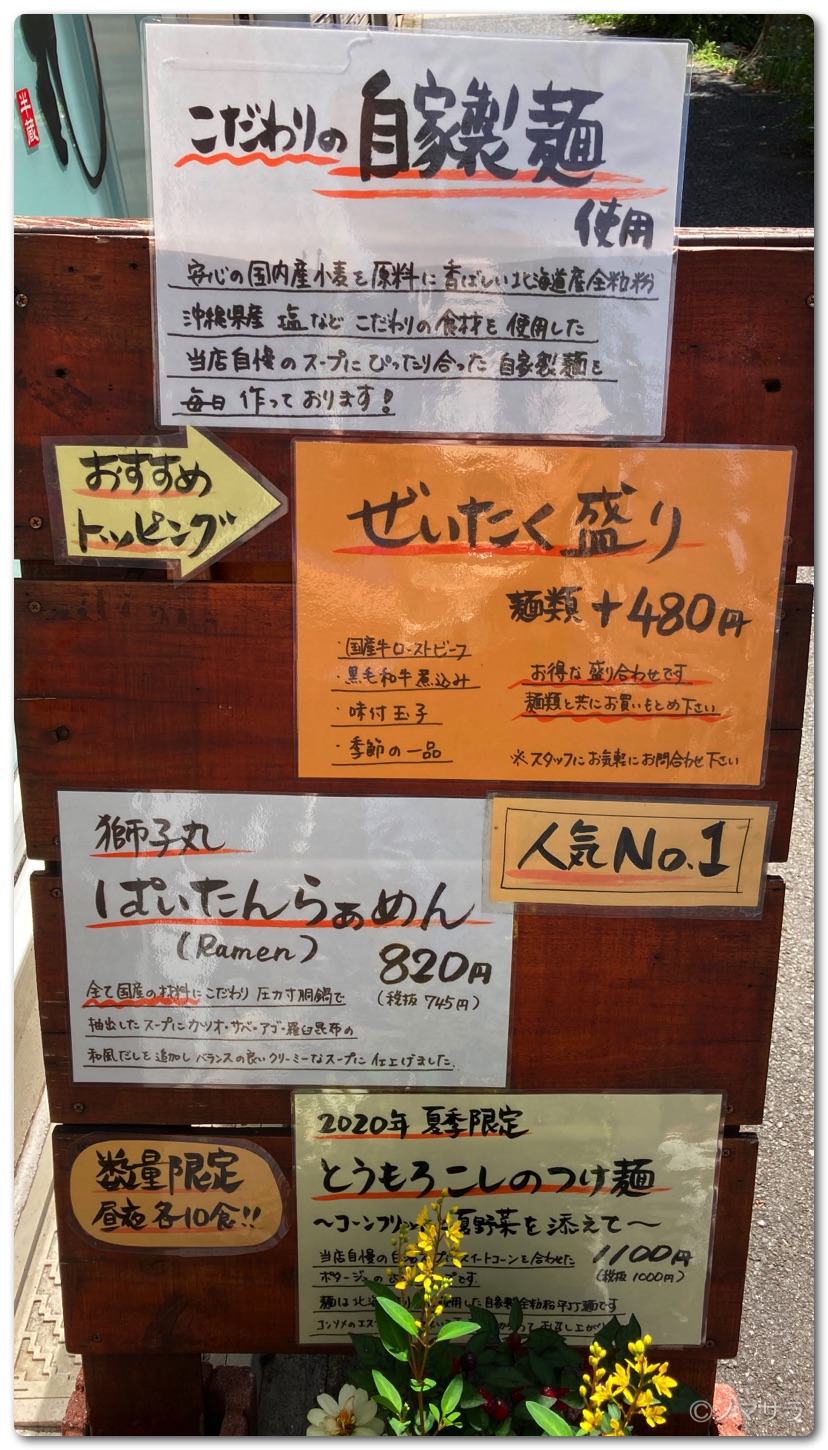 半蔵
こだわりの自家製麺
使用
安心の国内産小麦を原料に香ばしい北海道産全粒粉
沖縄県産 塩など こだわりの食材を使用した
当店自慢のスープにぴったり合った自家製麺を
毎日 作っております!
おすすめ
トッピング
ぜいたく盛り
麺類+480円
・国産牛ローストビーフ
・黒毛和牛煮込み
・味付玉子
・季節の一品
お得な盛り合わせです
麺類と共にお買いもとめ下さい
※スタッフにお気軽にお問合わせ下さい
獅子丸
ぱいたんらぁめん
(Ramen)
820円
(税抜 745円)
人気No.1
全て国産の材料にこだわり 圧力寸胴鍋で
抽出したスープにカツオ・サバ・アゴ・羅臼昆布の
和風だしを追加しバランスの良いクリーミーなスープに仕上げました。
数量限定
昼夜各10食!!
2020年 夏季限定
とうもろこしのつけ麺
〜コーンフリッ 夏野菜を添えて〜
1100円
(税抜 1000円)
当店自慢の スイートコーンを合わせた
ポタージュの です
麺は北海 使用した自家製全粒粉平打麺です
コンソメのエス
©ノマサラ